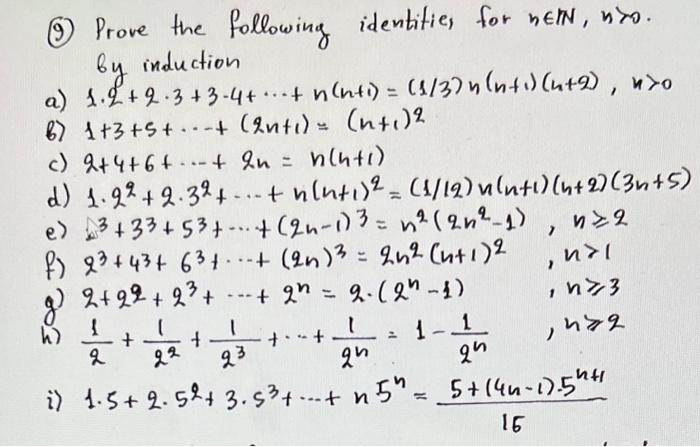 ⑨ Prove the following identities for n∈ℕ, n>0.
by induction
a) 1·2+2·3+3·4+···+n(n+1)=(1/3)n(n+1)(n+2), n>0
b) 1+3+5+···+(2n+1)=(n+1)²
c) 2+4+6+···+2n=n(n+1)
d) 1·2²+2·3²+···+n(n+1)²=(1/12)n(n+1)(n+2)(3n+5)
e) 1³+3³+5³+···+(2n-1)³=n²(2n²-1), n≥2
f) 2³+4³+6³+···+(2n)³=2n²(n+1)², n>1
g) 2+2²+2³+···+2ⁿ=2·(2ⁿ-1), n≥3
h) 1/2+1/2²+1/2³+···+1/2ⁿ=1-1/2ⁿ, n≥2
i) 1·5+2·5²+3·5³+···+n5ⁿ=5+(4n-1)·5ⁿ⁺¹/16